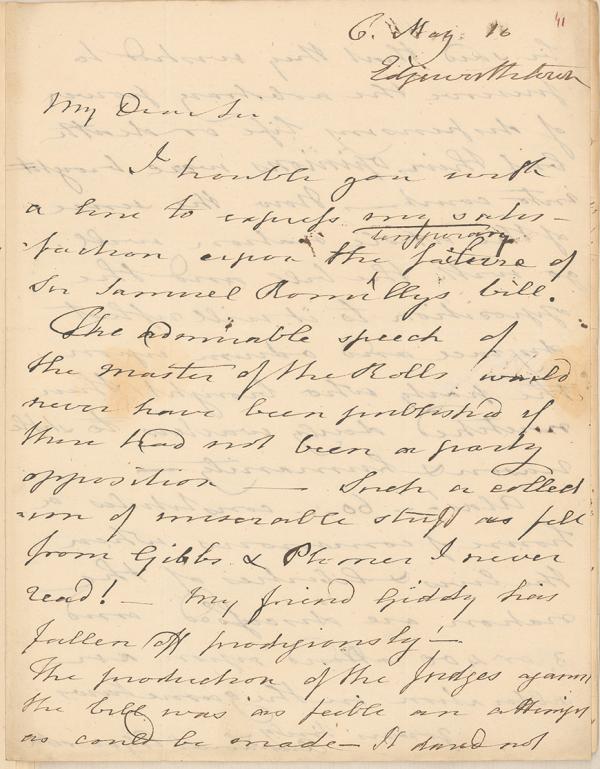 41
6. May 10
Edgeworthstown
My Dear Sir
I trouble you with
a line to express my satis-
faction upon the temporary failure of
Sir Samuel Romillys bill.
The admirable speech of
the master of the Rolls would
never have been published if
there had not been a party
opposition — Such a collect
-ion of miserable stuff as fell
from Gibbs & Plomer I never
read! — My friend Giddy has
fallen off prodigiously —
The production of the Judges against
the bill was as feible an attempt
as could be made — It dared not